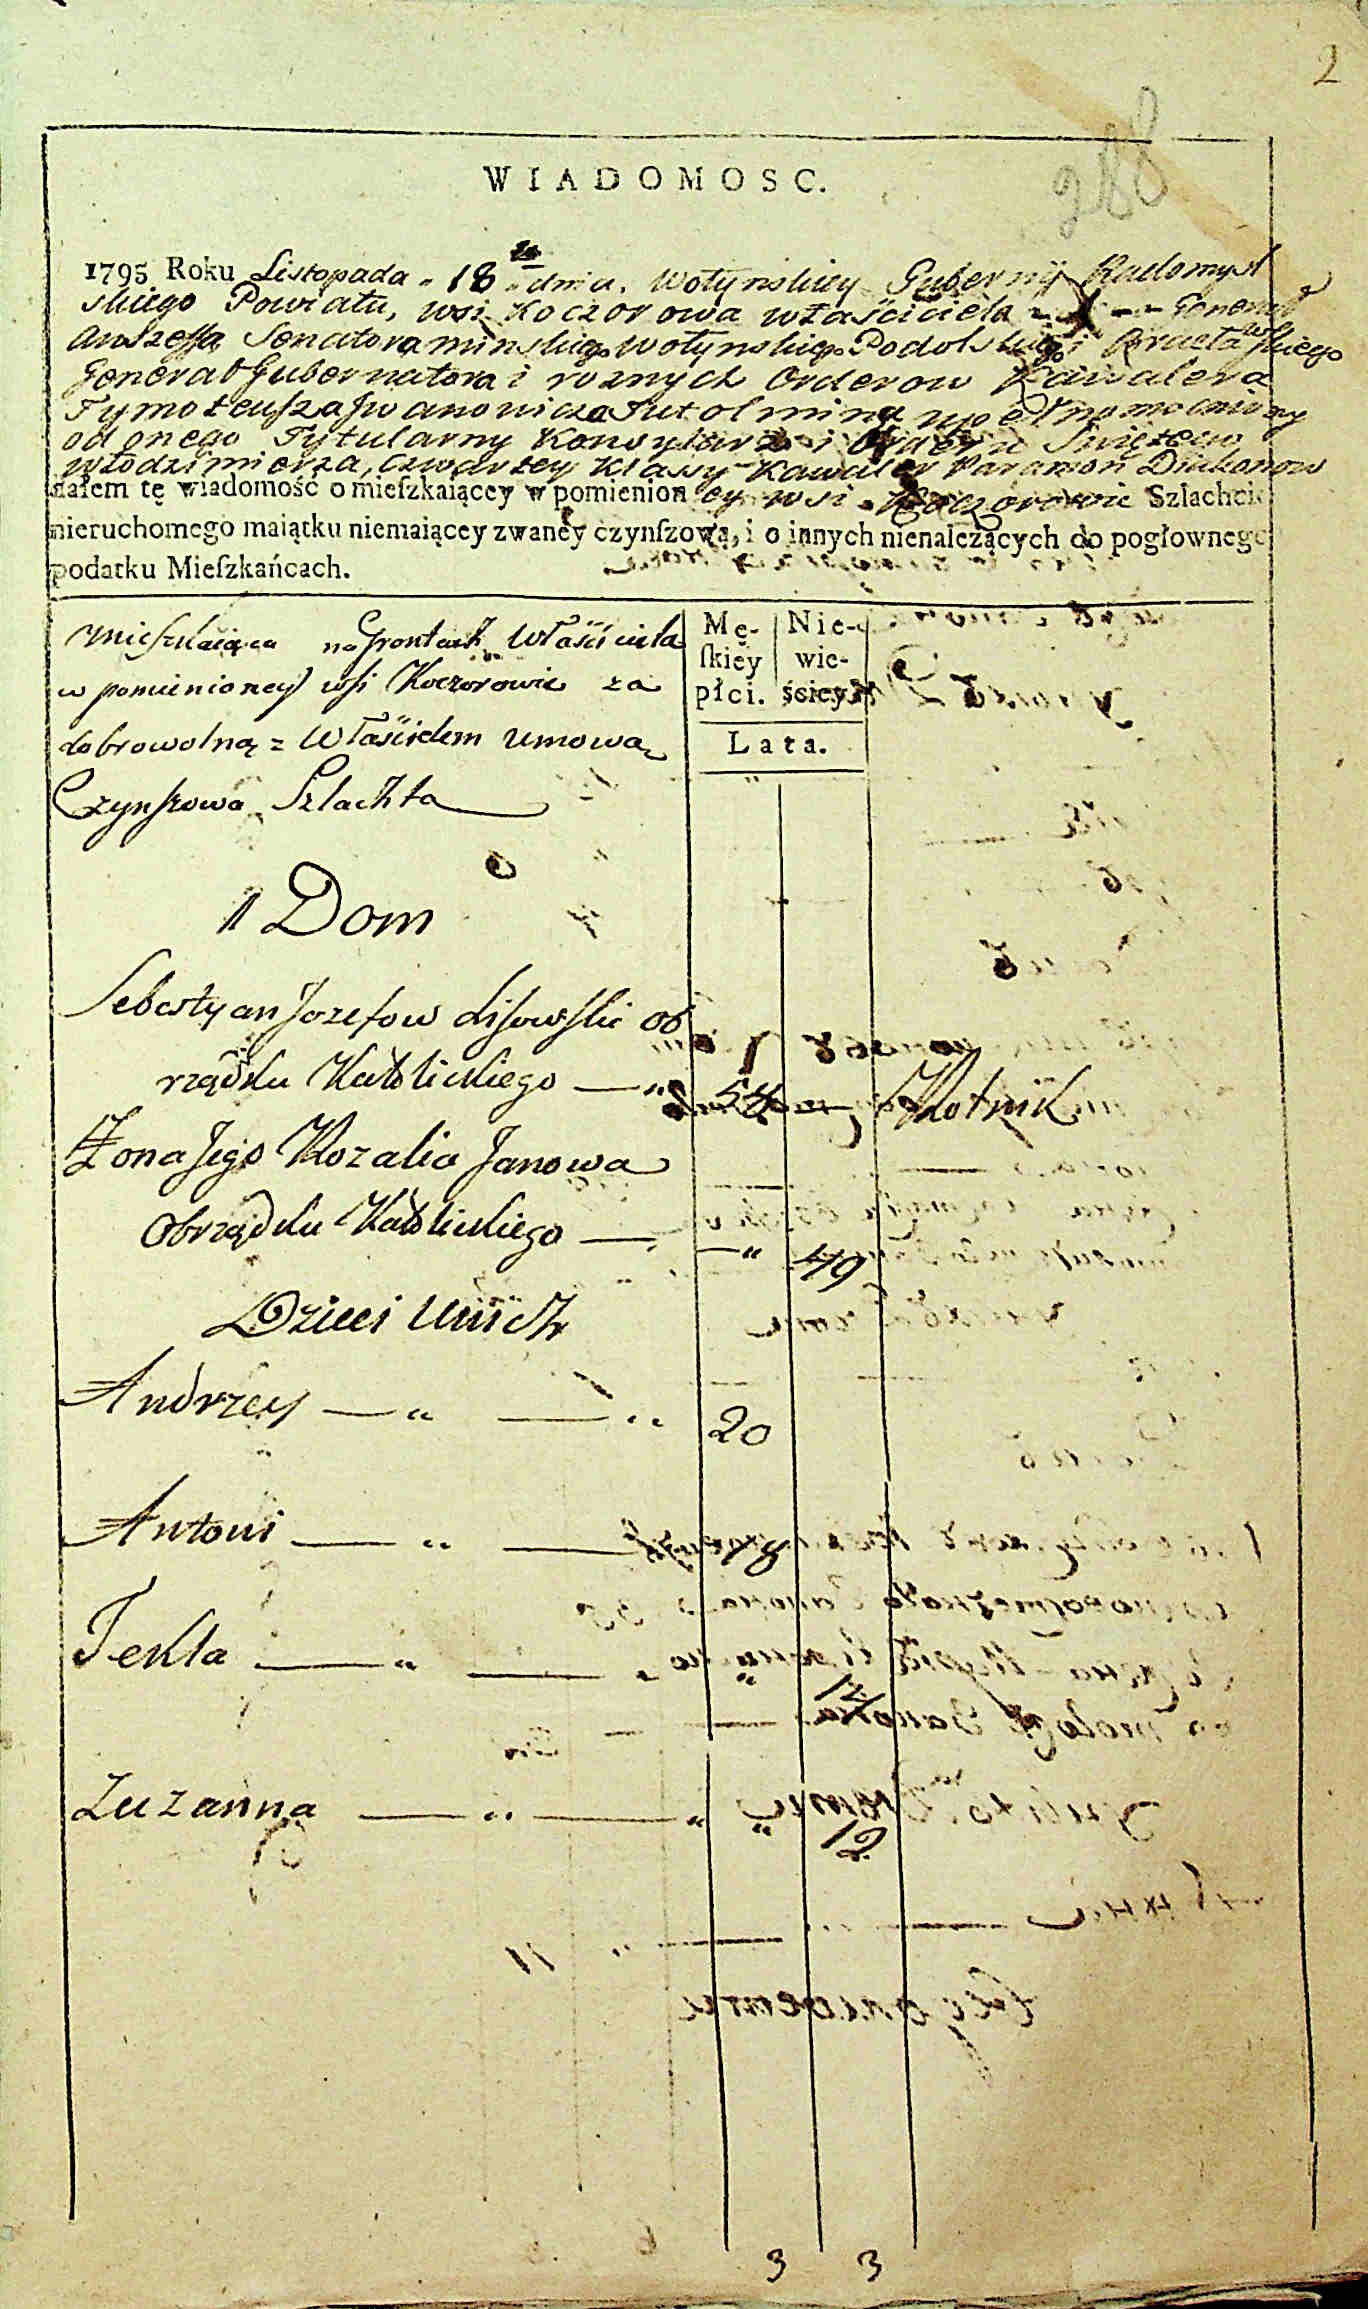 2
288
WIADOMOSC.
1795 Roku Listopada 18 dnia. Wołynskiey Gubernij Radomysl
skiego Powiatu, wsi Koczorowa właściciela Generał
Anszeffa Senatora minskiego Wołynskiego Podolskiego i Bracławskiego
Generał Gubernatora i roznych Orderow Kawalera
Tymoteusza Jwanowicza Tutolmina upełnomocniony
od onego Tytularny Konsyliarz i Orderu Swiętego
Włodzimierza, czwartey Klassy Kawaler Paramon Diakonow
dałem tę wiadomość o mieſzkaiącey w pomienioney wsi Koczorowie Szlachcie
nieruchomego maiątku niemaiącey zwaney czynſzową, i o innych nienależących do pogłownego
podatku Mieſzkańcach.
Mieſzkaiąca na Grontach Właściciela
w pomienioney wsi Koczorowie za
dobrowolną z Właścicielem umową
Czynſzowa Szlachta
Mę-
ſkiey
płci.
Nie-
wie-
ściey
Lata.
1 Dom
Sebastyan Jozefow Lisowski ob
rządku Katolickiego — 54 Kotnik
Żona Jego Rozalia Janowa
Obrządku Katolickiego — 49
Dzieci Unich
Andrzey — 20
Antoni —
Tekla —
Zuzanna — 12
3 3